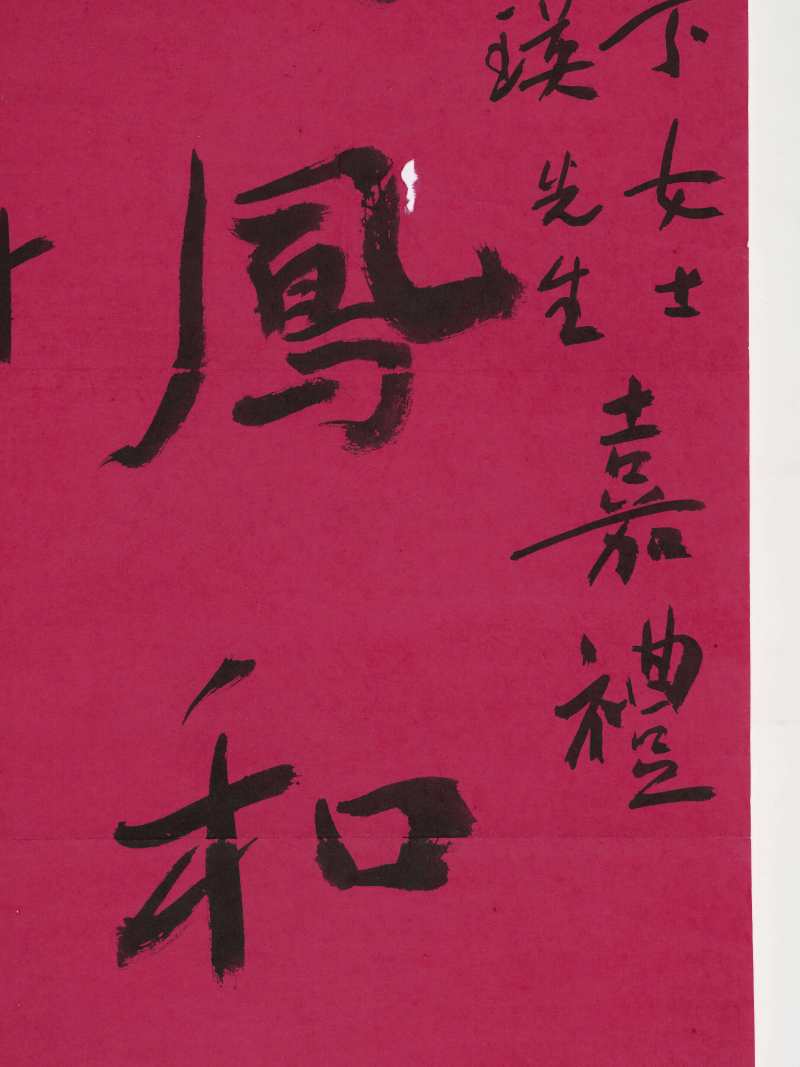 女士
瑛先生
嘉禮
鳳和